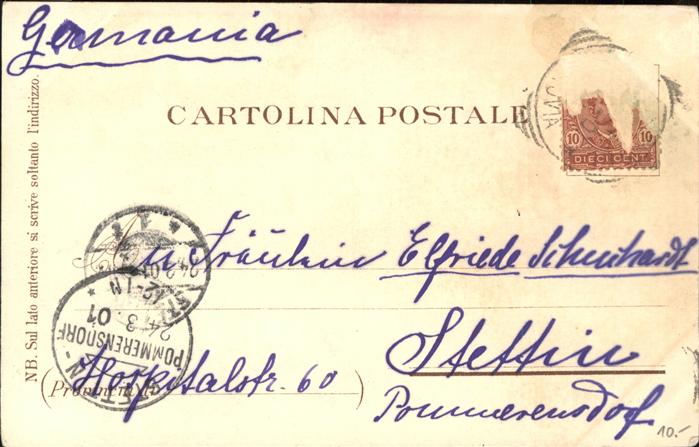 Germania
CARTOLINA POSTALE
10 10
DIECI CENT.
NB. Sul lato anteriore si scrive soltanto l'indirizzo.
Fräulein Elfriede Schuhardt
Stettin
Hospitalstr. 60
Pommerensdorf
STETTIN-
POMMERENSDORF
24.3.01
12-1N
10.-